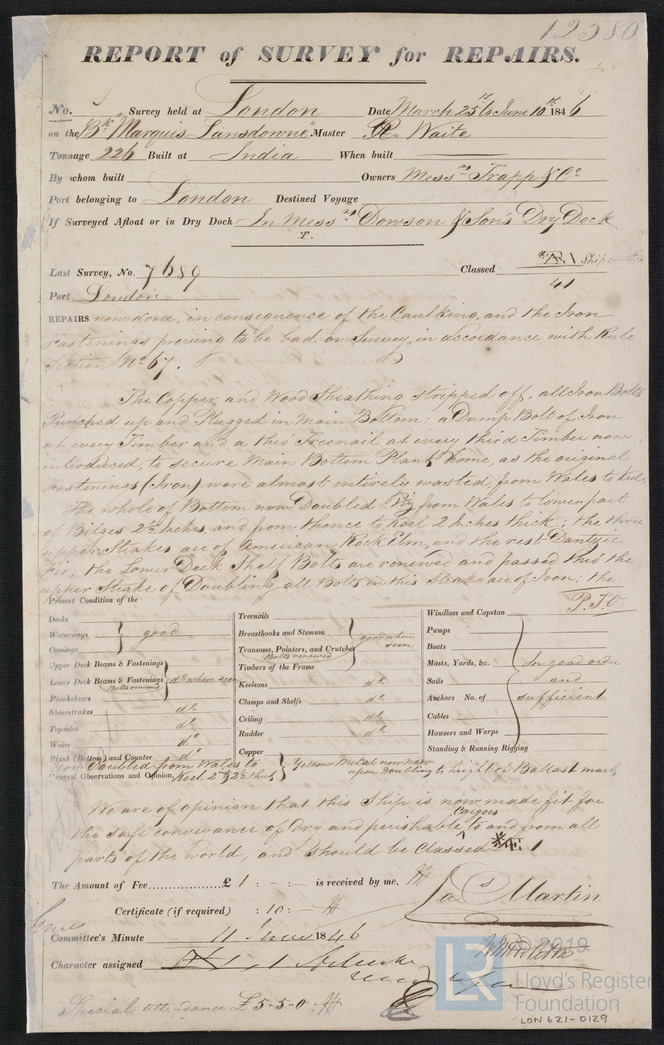 12580
REPORT of SURVEY for REPAIRS.
No. Survey held at London Date March 25th to June 10th 1846
on the Bk "Marquis Lansdowne" Master Rr Waite
Tonnage 226 Built at India When built
By whom built Owners Messrs Trapp & Co
Port belonging to London Destined Voyage
If Surveyed Afloat or in Dry Dock In Messrs Dowson & Son's Dry Dock
T.
Last Survey, No. 7689 Classed Ship
41
Port London
REPAIRS now done, in consequence of the Caulking, and the Iron
Fastenings proving to be bad on Survey, in accordance with Rule
Section No 67.
The Copper and Wood Sheathing stripped off, all Iron Bolts
Punched up and Plugged in Main Bottom: a Dump Bolt of Iron
at every Timber and a thro Treenail at every third Timber now
introduced, to secure Main Bottom Plank home, as the original
Fastenings (Iron) were almost entirely wasted, from Wales to Keel.
The whole of Bottom now Doubled Viz from Wales to lower part
of Bilges 2½ Inches, and from thence to Keel 2 Inches thick; the three
upper Strakes are of American Rock Elm, and the rest Dantzic
Fir; the Lower Deck Shelf Bolts are renewed and passed thro the
upper Strake of Doubling, all Bolts in this Strake are of Iron; the
P.T.O
Present Condition of the
Decks
Waterways good
Comings
Upper Deck Beams & Fastenings
Lower Deck Beams & Fastenings do where seen
Bolts renewed
Planksheers
Sheerstrakes do
Topsides do
Wales do
Plank (Bottom) and Counter do
Doubled from Wales to
Keel 2 & 2½ thick
Treenails
Breasthooks and Stemson good where seen
Transoms, Pointers, and Crutches
Bolts renewed
Timbers of the Frame
Keelsons do
Clamps and Shelfs do
Ceiling do
Rudder do
Copper
Yellow Metal now new
upon Doubling to height of Ballast mark
Windlass and Capstan
Pumps
Boats
Masts, Yards, &c. In good order
Sails and
Anchors No. of sufficient
Cables
Hausers and Warps
Standing & Running Rigging
General Observations and Opinion,
We are of opinion that this Ship is now made fit for
the safe conveyance of dry and perishable Cargoes to and from all
parts of the world, and should be Classed *Æ 1
The Amount of Fee £ 1 : - : - is received by me,
Jas Martin
Certificate (if required) : 10 : -
Committee's Minute 11 June 1846
Character assigned
Special attendance £5-5-0
LR
© 2019
Lloyd's Register
Foundation
LON 621-0129